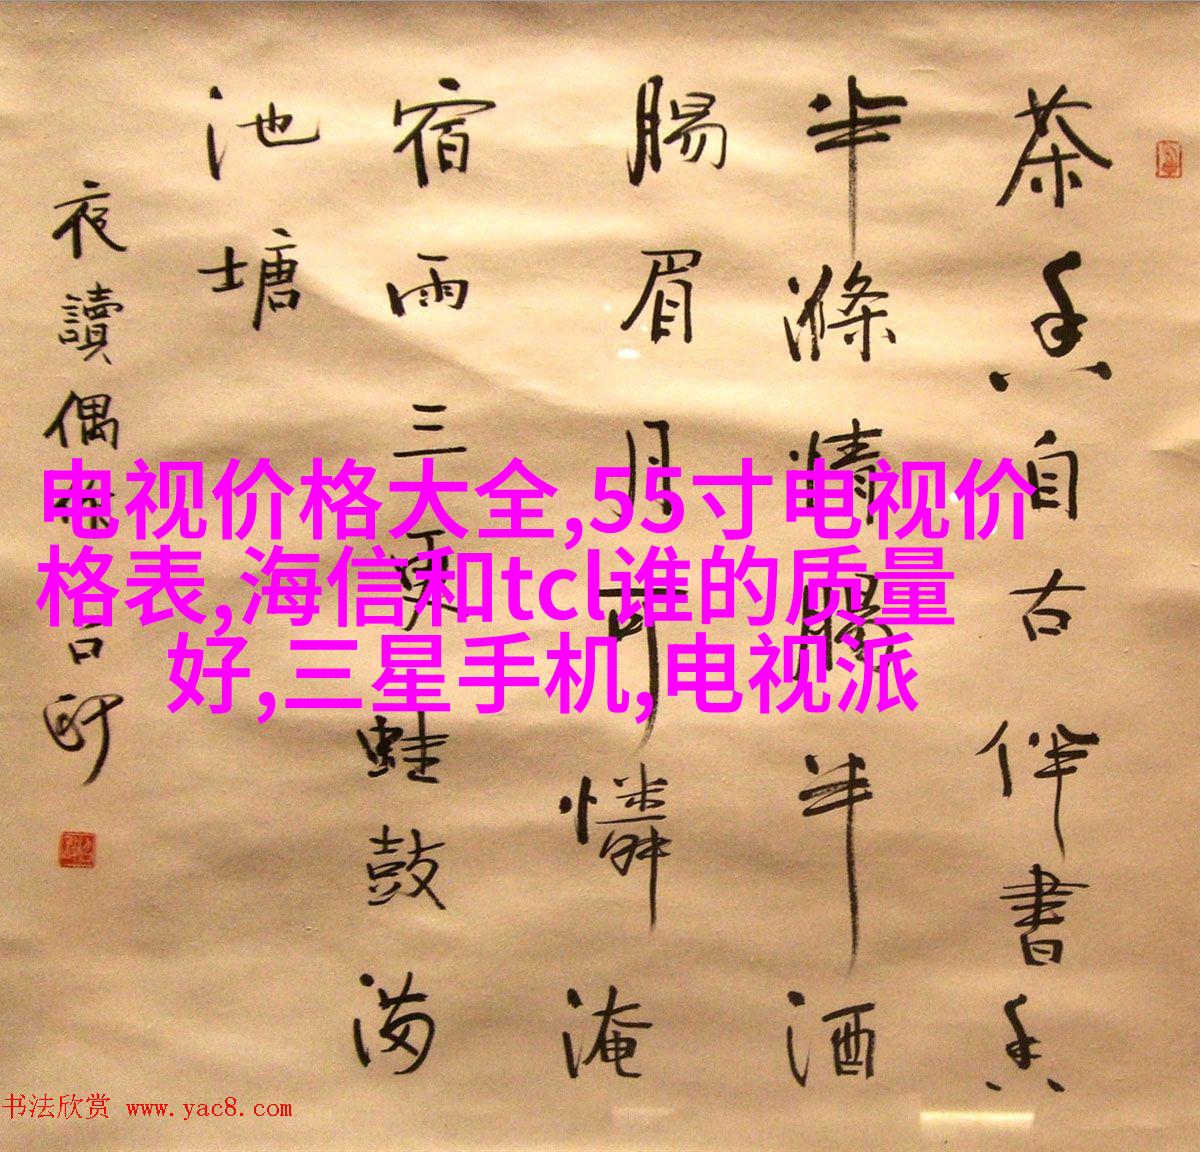 茶香自古伴書香
半滌情腸半酒
腸眉月可憐淹
宿雨三更蛙鼓满
池塘
夜讀偶
电视价格大全,55寸电视价
格表,海信和tcl谁的质量
好,三星手机,电视派
书法欣赏 www.yac8.com